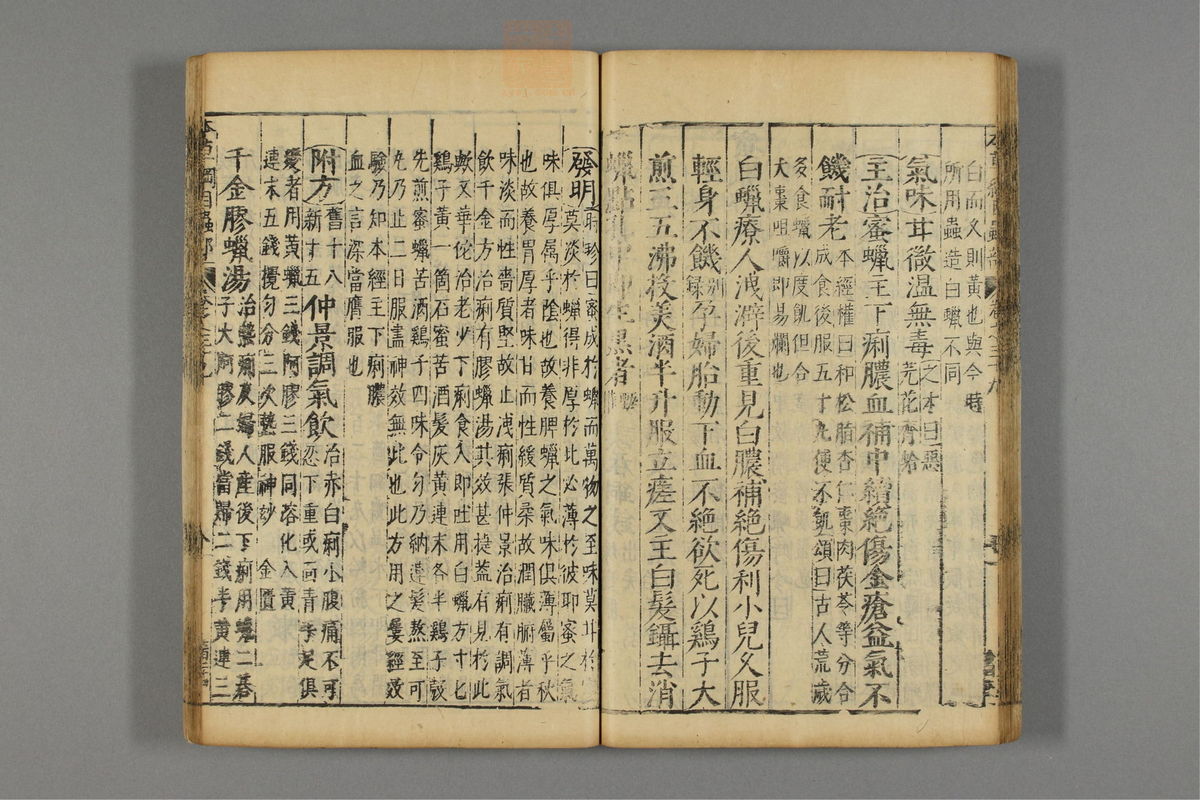 白而久則黃也與今時
所用蟲造白蠟不同
氣味甘微溫無毒之才曰惡芫花齊蛤
主治蜜蠟主下痢膿血補中續絕傷金瘡益氣不
饑耐老本經權曰和松脂杏仁棗肉茯苓等分合
成食後服五十丸便不飢頌曰古人荒歲
多食蠟以度飢但合
大棗咀嚼即易爛也
白蠟療人洩澼後重見白膿補絕傷利小兒久服
輕身不饑別錄孕婦胎動下血不絕欲死以鷄子大
煎三五沸投美酒半升服立瘥又主白髮鑷去消
蠟點孔中即生黑者甄權
發明時珍曰蜜成於蠟而萬物之至味莫甘於蜜
莫淡於蠟得非厚於此必薄於彼耶蜜之氣
味俱厚属乎陰也故養脾蠟之氣味俱薄屬乎秋
也故養胃厚者味甘而性緩質柔故潤臟腑薄者
味淡而性嗇質堅故止洩痢張仲景治痢有調氣
飲千金方治痢有膠蠟湯其效甚捷蓋有見於此
歟又華佗治老少下痢食入即吐用白蠟方寸匕
鷄子黃一箇石蜜苦酒髮灰黃連末各半鷄子殼
先煎蜜蠟苦酒鷄子四味令勻乃納連髮熬至可
丸乃止二日服盡神效無比也此方用之屢經效
驗乃知本經主下痢膿
血之言深當膺服也
附方舊十八新十五仲景調氣飲治赤白痢小腹痛不可
忍下重或面青手足俱
變者用黃蠟三錢阿膠三錢同溶化入黃
連末五錢攪勻分三次熱服神妙金匱
千金膠蠟湯治熱痢及婦人産後下痢用蠟二碁
子大阿膠二錢當歸二錢半黃連三